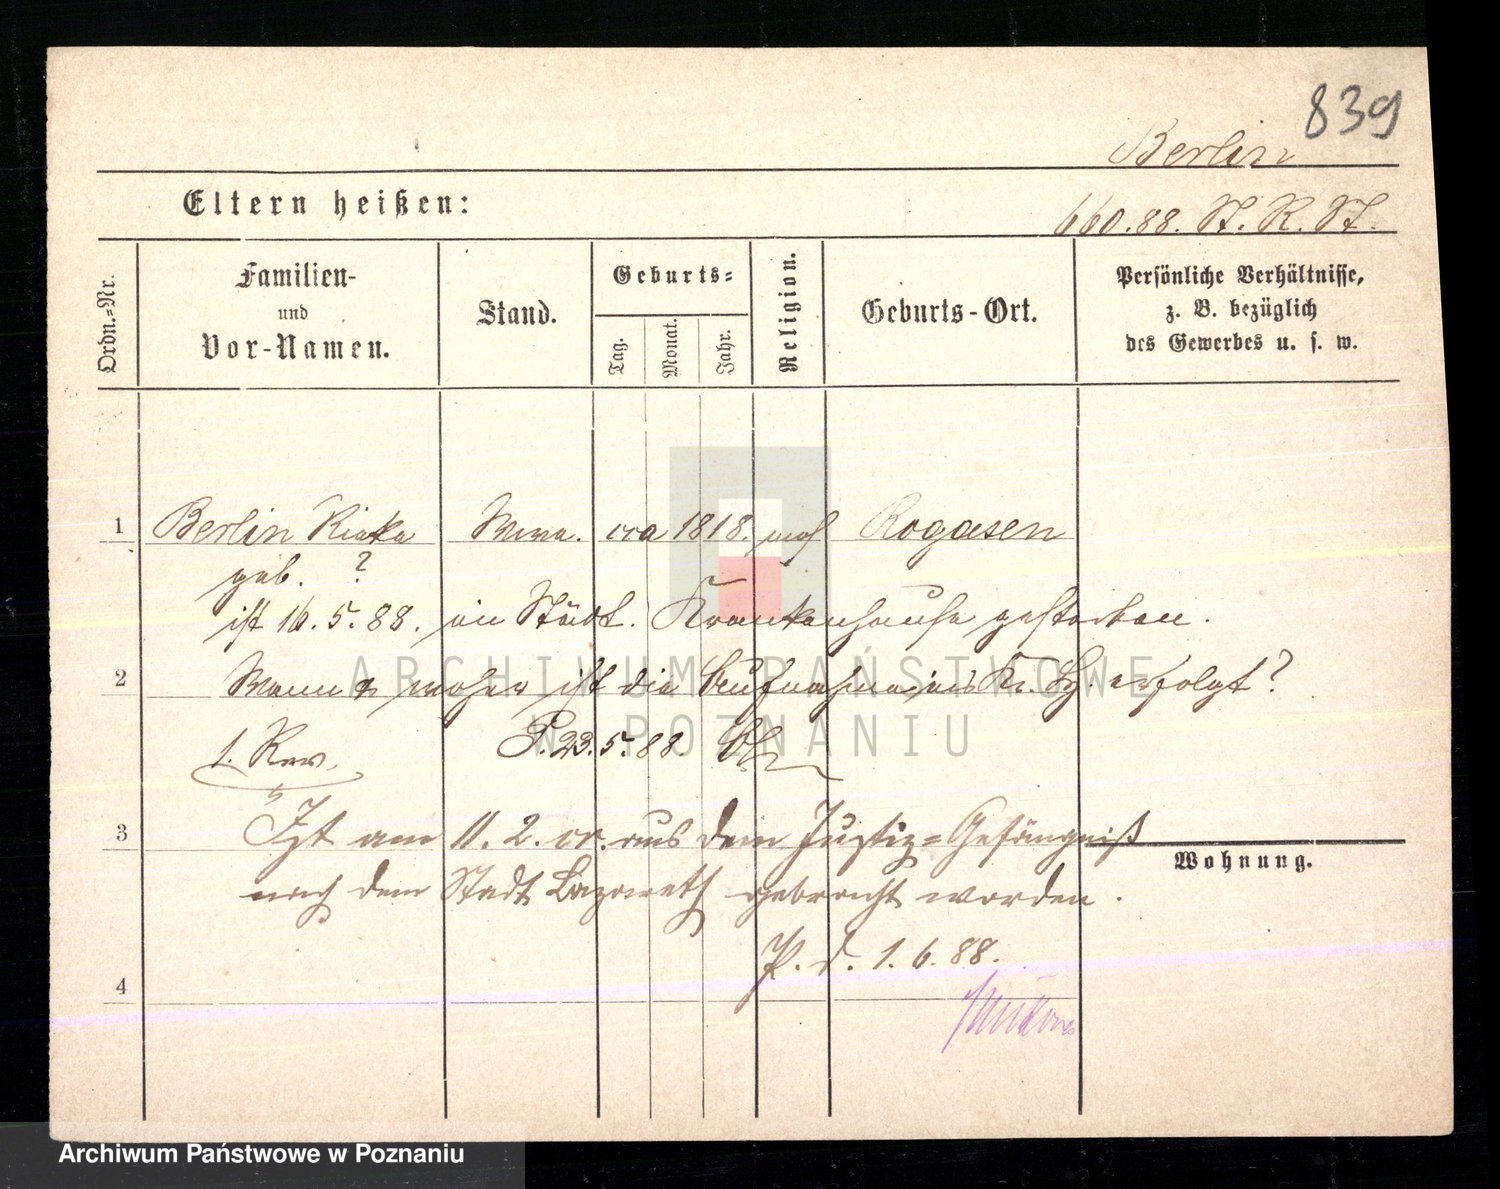 839
Berlin
Eltern heißen:
660.88. St. R. St.
Ordn.-Nr.
Familien-
und
Vor-Namen.
Stand.
Geburts-
Tag.
Monat.
Jahr.
Religion.
Geburts-Ort.
Persönliche Verhältnisse,
z. B. bezüglich
des Gewerbes u. s. w.
1 Berlin Rieke Wwe. cca 1818. mos Rogasen
geb. ?
ist 16.5.88. im Städt. Krankenhause gestorben.
2 Wann & woher ist die Aufnahme ins Kr. Hs. erfolgt?
1. Rev. P. 23.5.88.
3 Ist am 11.2. cr. aus dem Justiz-Gefängniß
Wohnung.
nach dem Stadt Lazareth gebracht worden.
P. d. 1.6.88.
4
ARCHIWUM PAŃSTWOWE
W POZNANIU
Archiwum Państwowe w Poznaniu